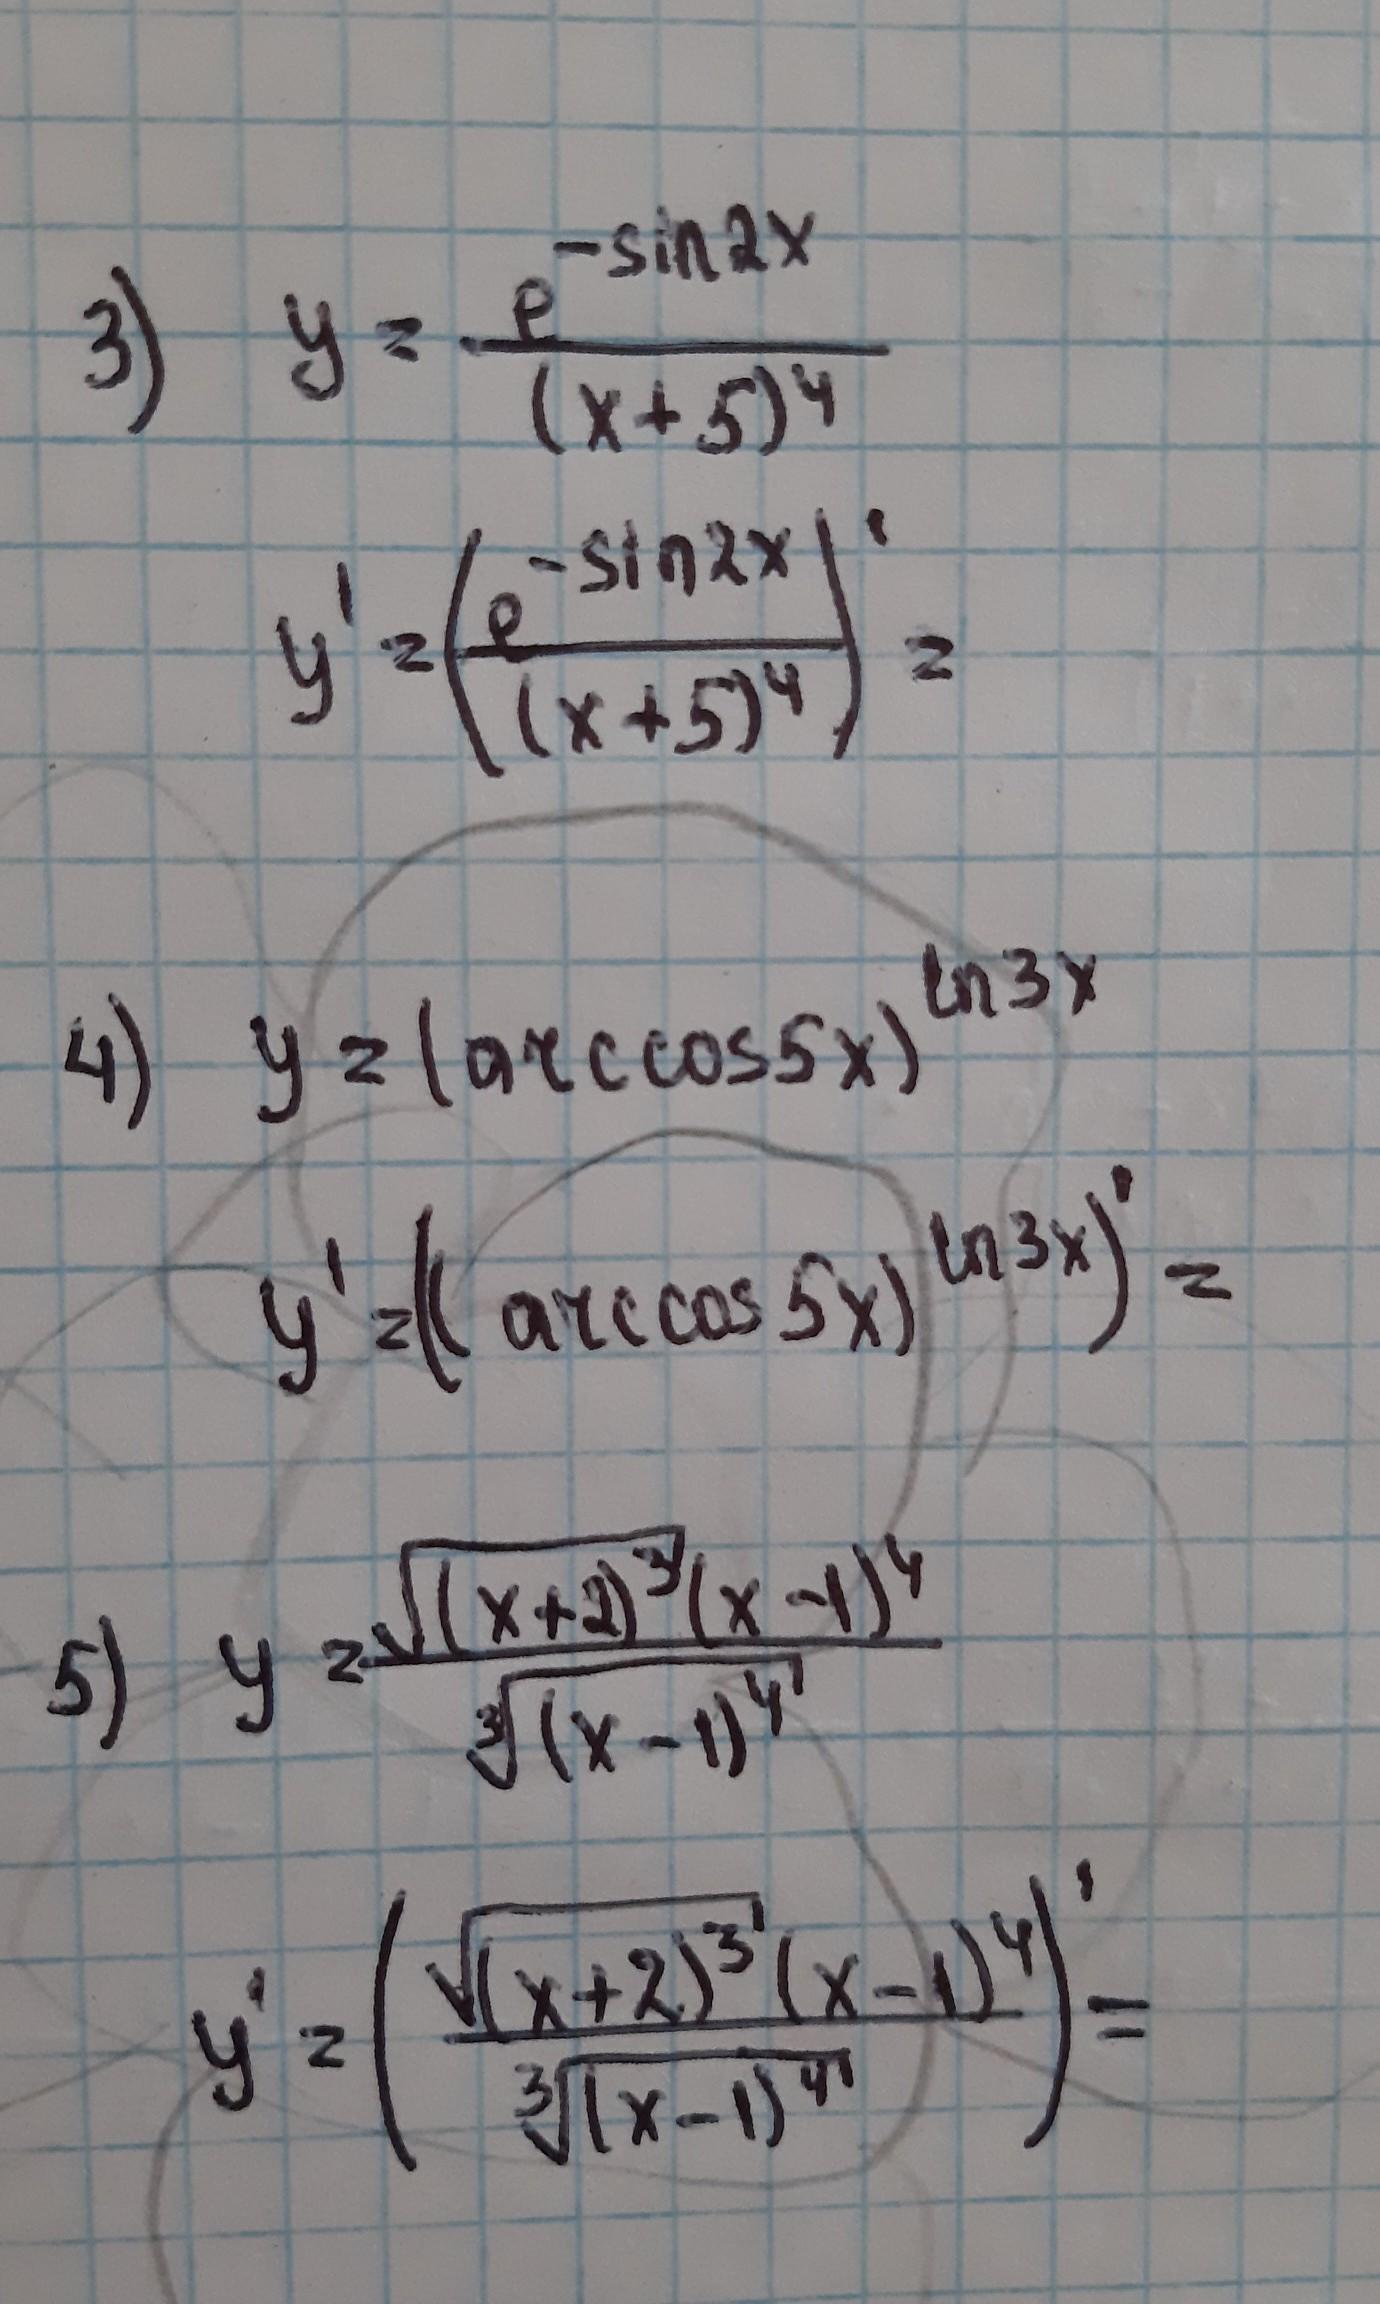 3) y = e^{-sin2x} / (x+5)^4
y' = (e^{-sin2x} / (x+5)^4)' =
4) y = (arccos5x)^{ln3x}
y' = ((arccos5x)^{ln3x})' =
5) y = √((x+2)^3) (x-1)^4 / ∛((x-1)^4)
y' = (√((x+2)^3) (x-1)^4 / ∛((x-1)^4))' =